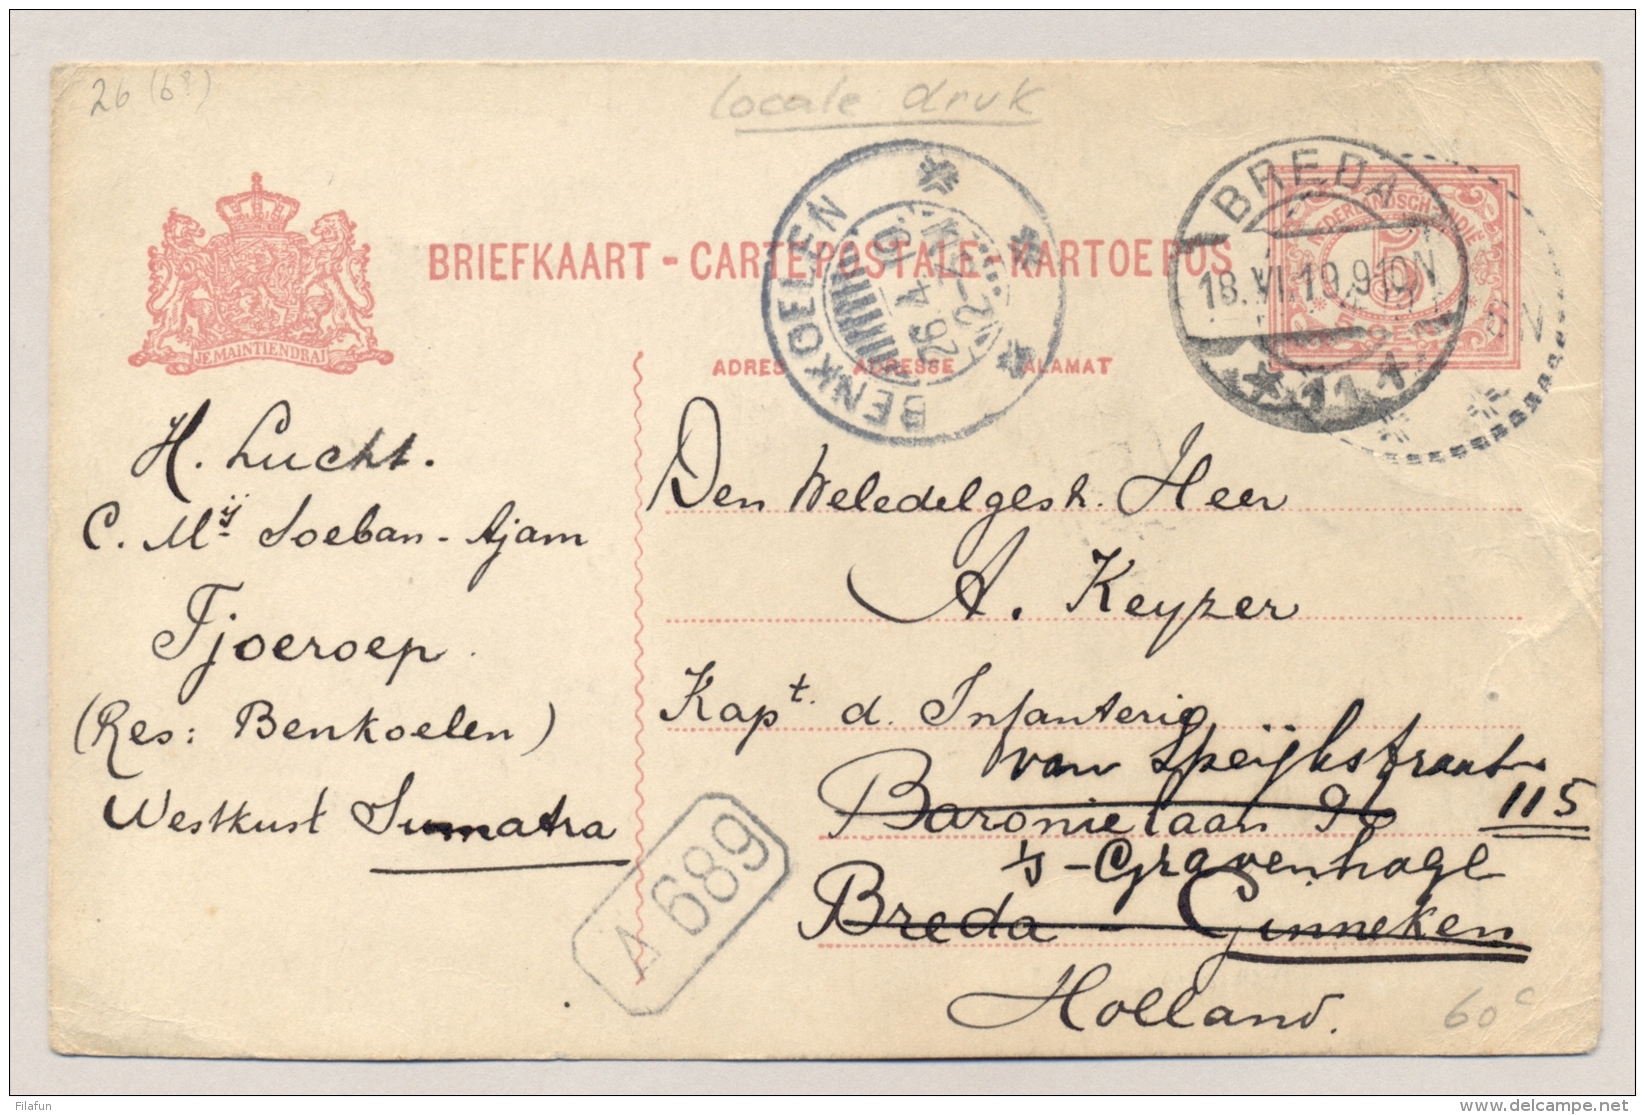 26 (6?)
locale druk
BREDA
18.VI.19.910N
11
NEDERLANDSCH-INDIË
5
BENKOELEN
26 4 19
BRIEFKAART - CARTE POSTALE - KARTOE POS
JE MAINTIENDRAI
ADRES ADRESSE ALAMAT
H. Lucht.
C. Mij Soeban-Ajam
Tjoeroep.
(Res: Benkoelen)
Westkust Sumatra
Den Weledelgestr. Heer
A. Keyzer
Kapt. d. Infanterie
van Speijkstraat
Baronielaan 115
's-Gravenhage
Breda - Ginneken
Holland.
A 689
60 c
Filafun
www.delcampe.net